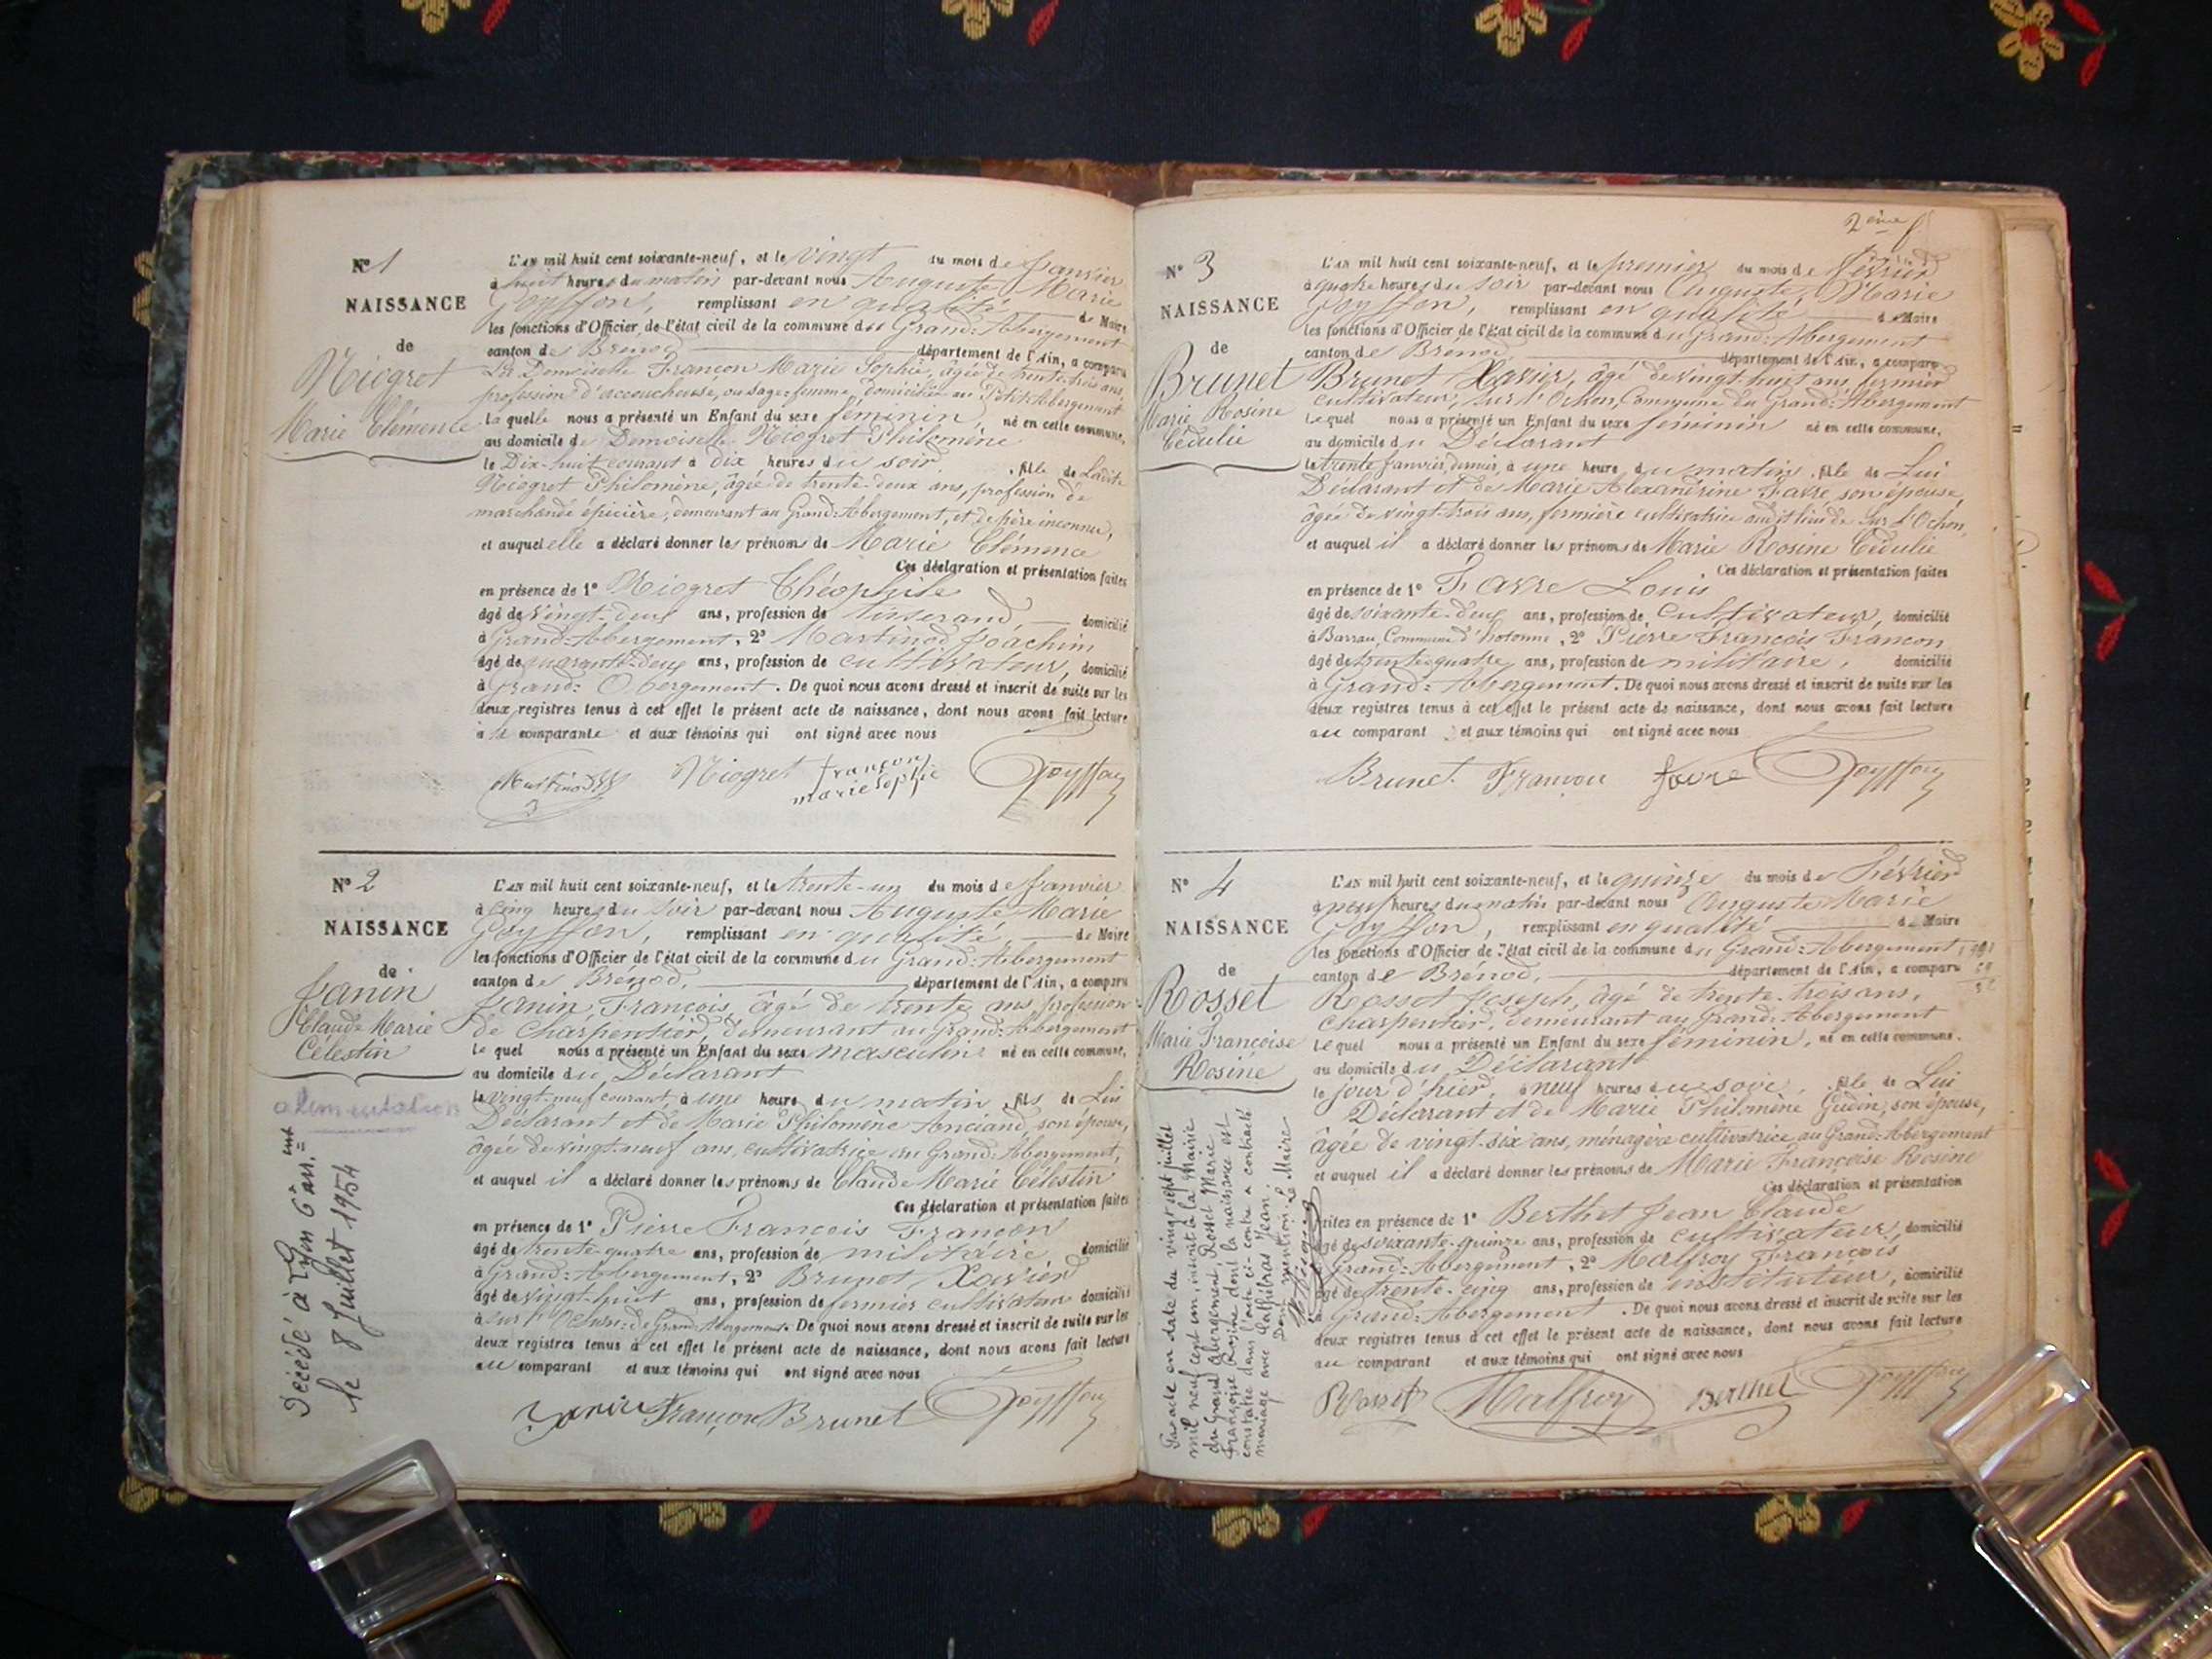 N° 1
NAISSANCE
de
Niogret
Marie Clémence
L'AN mil huit cent soixante-neuf, et le vingt du mois de Janvier
à huit heures du matin par-devant nous Auguste Marie
Goyffon, remplissant en qualité de Maire
les fonctions d'Officier de l'état civil de la commune du Grand-Abergement
canton de Brénod, département de l'Ain, a comparu
La Demoiselle Françon Marie Sophie, âgée de trente-trois ans,
profession d'accoucheuse, ou sage-femme, domiciliée au Petit-Abergement
Laquelle nous a présenté un Enfant du sexe féminin, né en cette commune,
au domicile de Demoiselle Niogret Philomène
le Dix-huit courant à dix heures du soir, fille de Ladite
Niogret Philomène, âgée de trente-deux ans, profession de
marchande épicière, demeurant au Grand-Abergement, et de père inconnu,
et auquel elle a déclaré donner les prénoms de Marie Clémence
Ces déclaration et présentation faites
en présence de 1° Niogret Théophile
âgé de vingt-deux ans, profession de tisserand, domicilié
à Grand-Abergement, 2° Martinod Joachim
âgé de quarante-deux ans, profession de cultivateur, domicilié
à Grand-Abergement. De quoi nous avons dressé et inscrit de suite sur les
deux registres tenus à cet effet le présent acte de naissance, dont nous avons fait lecture
à la comparante et aux témoins qui ont signé avec nous
Martinod Niogret françon marie sophie Goyffon
N° 2
NAISSANCE
de
Janin
Claude Marie
Célestin
alimentation
Décédé à Lyon 6e arr.mt
le 8 Juillet 1954
L'AN mil huit cent soixante-neuf, et le trente-un du mois de Janvier
à cinq heures du soir par-devant nous Auguste Marie
Goyffon, remplissant en qualité de Maire
les fonctions d'Officier de l'état civil de la commune du Grand-Abergement
canton de Brénod, département de l'Ain, a comparu
Janin, François, âgé de trente ans, profession
de charpentier, demeurant au Grand-Abergement
Lequel nous a présenté un Enfant du sexe masculin né en cette commune,
au domicile du Déclarant
le vingt-neuf courant, à une heure du matin, fils de Lui
Déclarant et de Marie Philomène Anciand, son épouse,
âgée de vingt-neuf ans, cultivatrice au Grand-Abergement,
et auquel il a déclaré donner les prénoms de Claude Marie Célestin
Ces déclaration et présentation faites
en présence de 1° Pierre François Françon
âgé de trente-quatre ans, profession de militaire, domicilié
à Grand-Abergement, 2° Brunet Xavier
âgé de vingt-huit ans, profession de fermier cultivateur domicilié
à Sur l'Ochon, de Grand-Abergement. De quoi nous avons dressé et inscrit de suite sur les
deux registres tenus à cet effet le présent acte de naissance, dont nous avons fait lecture
au comparant et aux témoins qui ont signé avec nous
Janin Françon Brunet Goyffon
2ème f
N° 3
NAISSANCE
de
Brunet
Marie Rosine
Cédulie
L'AN mil huit cent soixante-neuf, et le premier du mois de Février
à quatre heures du soir par-devant nous Auguste Marie
Goyffon, remplissant en qualité de Maire
les fonctions d'Officier de l'état civil de la commune du Grand-Abergement
canton de Brénod, département de l'Ain, a comparu
Brunet Xavier, âgé de vingt-huit ans, fermier
cultivateur, sur l'Ochon, Commune du Grand-Abergement
Lequel nous a présenté un Enfant du sexe féminin né en cette commune,
au domicile du Déclarant
le trente Janvier dernier, à une heure du matin, fille de Lui
Déclarant et de Marie Alexandrine Favre, son épouse,
âgée de vingt-trois ans, fermière cultivatrice audit lieu de Sur l'Ochon,
et auquel il a déclaré donner les prénoms de Marie Rosine Cédulie
Ces déclaration et présentation faites
en présence de 1° Favre Louis
âgé de soixante-deux ans, profession de cultivateur, domicilié
à Barran, Commune d'hotonne, 2° Pierre François Françon
âgé de trente-quatre ans, profession de militaire, domicilié
à Grand-Abergement. De quoi nous avons dressé et inscrit de suite sur les
deux registres tenus à cet effet le présent acte de naissance, dont nous avons fait lecture
au comparant et aux témoins qui ont signé avec nous
Brunet Françon favre Goyffon
N° 4
NAISSANCE
de
Rosset
Marie Françoise
Rosine
Par acte en date du vingt sept juillet
mil neuf cent un, inscrit à la mairie
du Grand Abergement, Rosset Marie
Françoise Rosine dont la naissance est
constatée dans l'acte ci-contre a contracté
mariage avec Cathébras Jean.
Dont mention. Le Maire
L'AN mil huit cent soixante-neuf, et le quinze du mois de Février
à neuf heures du matin par-devant nous Auguste Marie
Goyffon, remplissant en qualité de Maire
les fonctions d'Officier de l'état civil de la commune du Grand-Abergement
canton de Brénod, département de l'Ain, a comparu
Rosset Joseph, âgé de trente-trois ans,
charpentier, demeurant au Grand-Abergement
Lequel nous a présenté un Enfant du sexe féminin, né en cette commune.
au domicile du Déclarant
le jour d'hier, à neuf heures du soir, fille de Lui
Déclarant et de Marie Philomène Gudin, son épouse,
âgée de vingt-six ans, ménagère cultivatrice au Grand-Abergement
et auquel il a déclaré donner les prénoms de Marie Françoise Rosine
Ces déclaration et présentation
faites en présence de 1° Berthet Jean Claude
âgé de soixante-quinze ans, profession de cultivateur, domicilié
à Grand-Abergement, 2° Malfroy François
âgé de trente-cinq ans, profession de instituteur, domicilié
à Grand-Abergement. De quoi nous avons dressé et inscrit de suite sur les
deux registres tenus à cet effet le présent acte de naissance, dont nous avons fait lecture
au comparant et aux témoins qui ont signé avec nous
Rosset Malfroy Berthet Goyffon